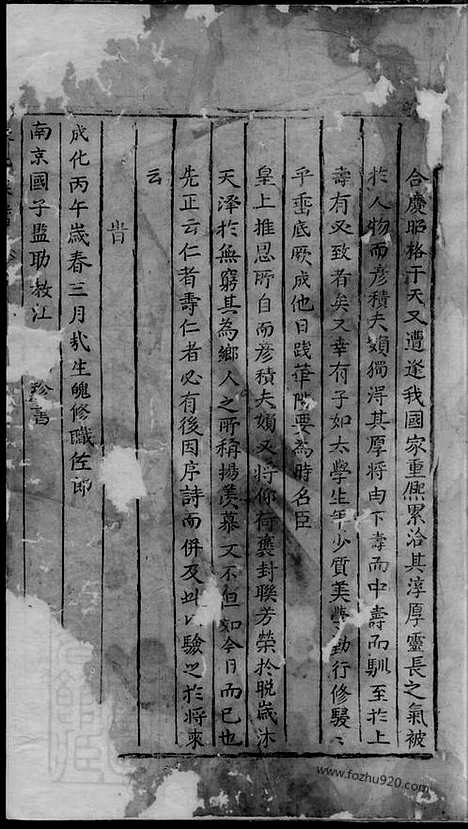 合慶昭格于天又遭逢我國家重熈累洽其淳厚靈長之氣被
於人物而彦積夫婦獨得其厚將由下壽而中壽而馴至於上
壽有又致者矣又幸有子如太學生年少質美勤行修駸〻
乎垂底厥成他日踐華要為時名臣
皇上推恩所自而彦積夫婦又將仰荷褒封聯芳榮於晚歲沐
天澤於無窮其為鄉人之所稱揚羡慕又不但如今日而已也
先正云仁者壽仁者必有後因序詩而併及此以驗之於將來
云
旹
成化丙午歲春三月哉生魄修職佐郎
南京國子監助教江珍書
www.fozhu920.com